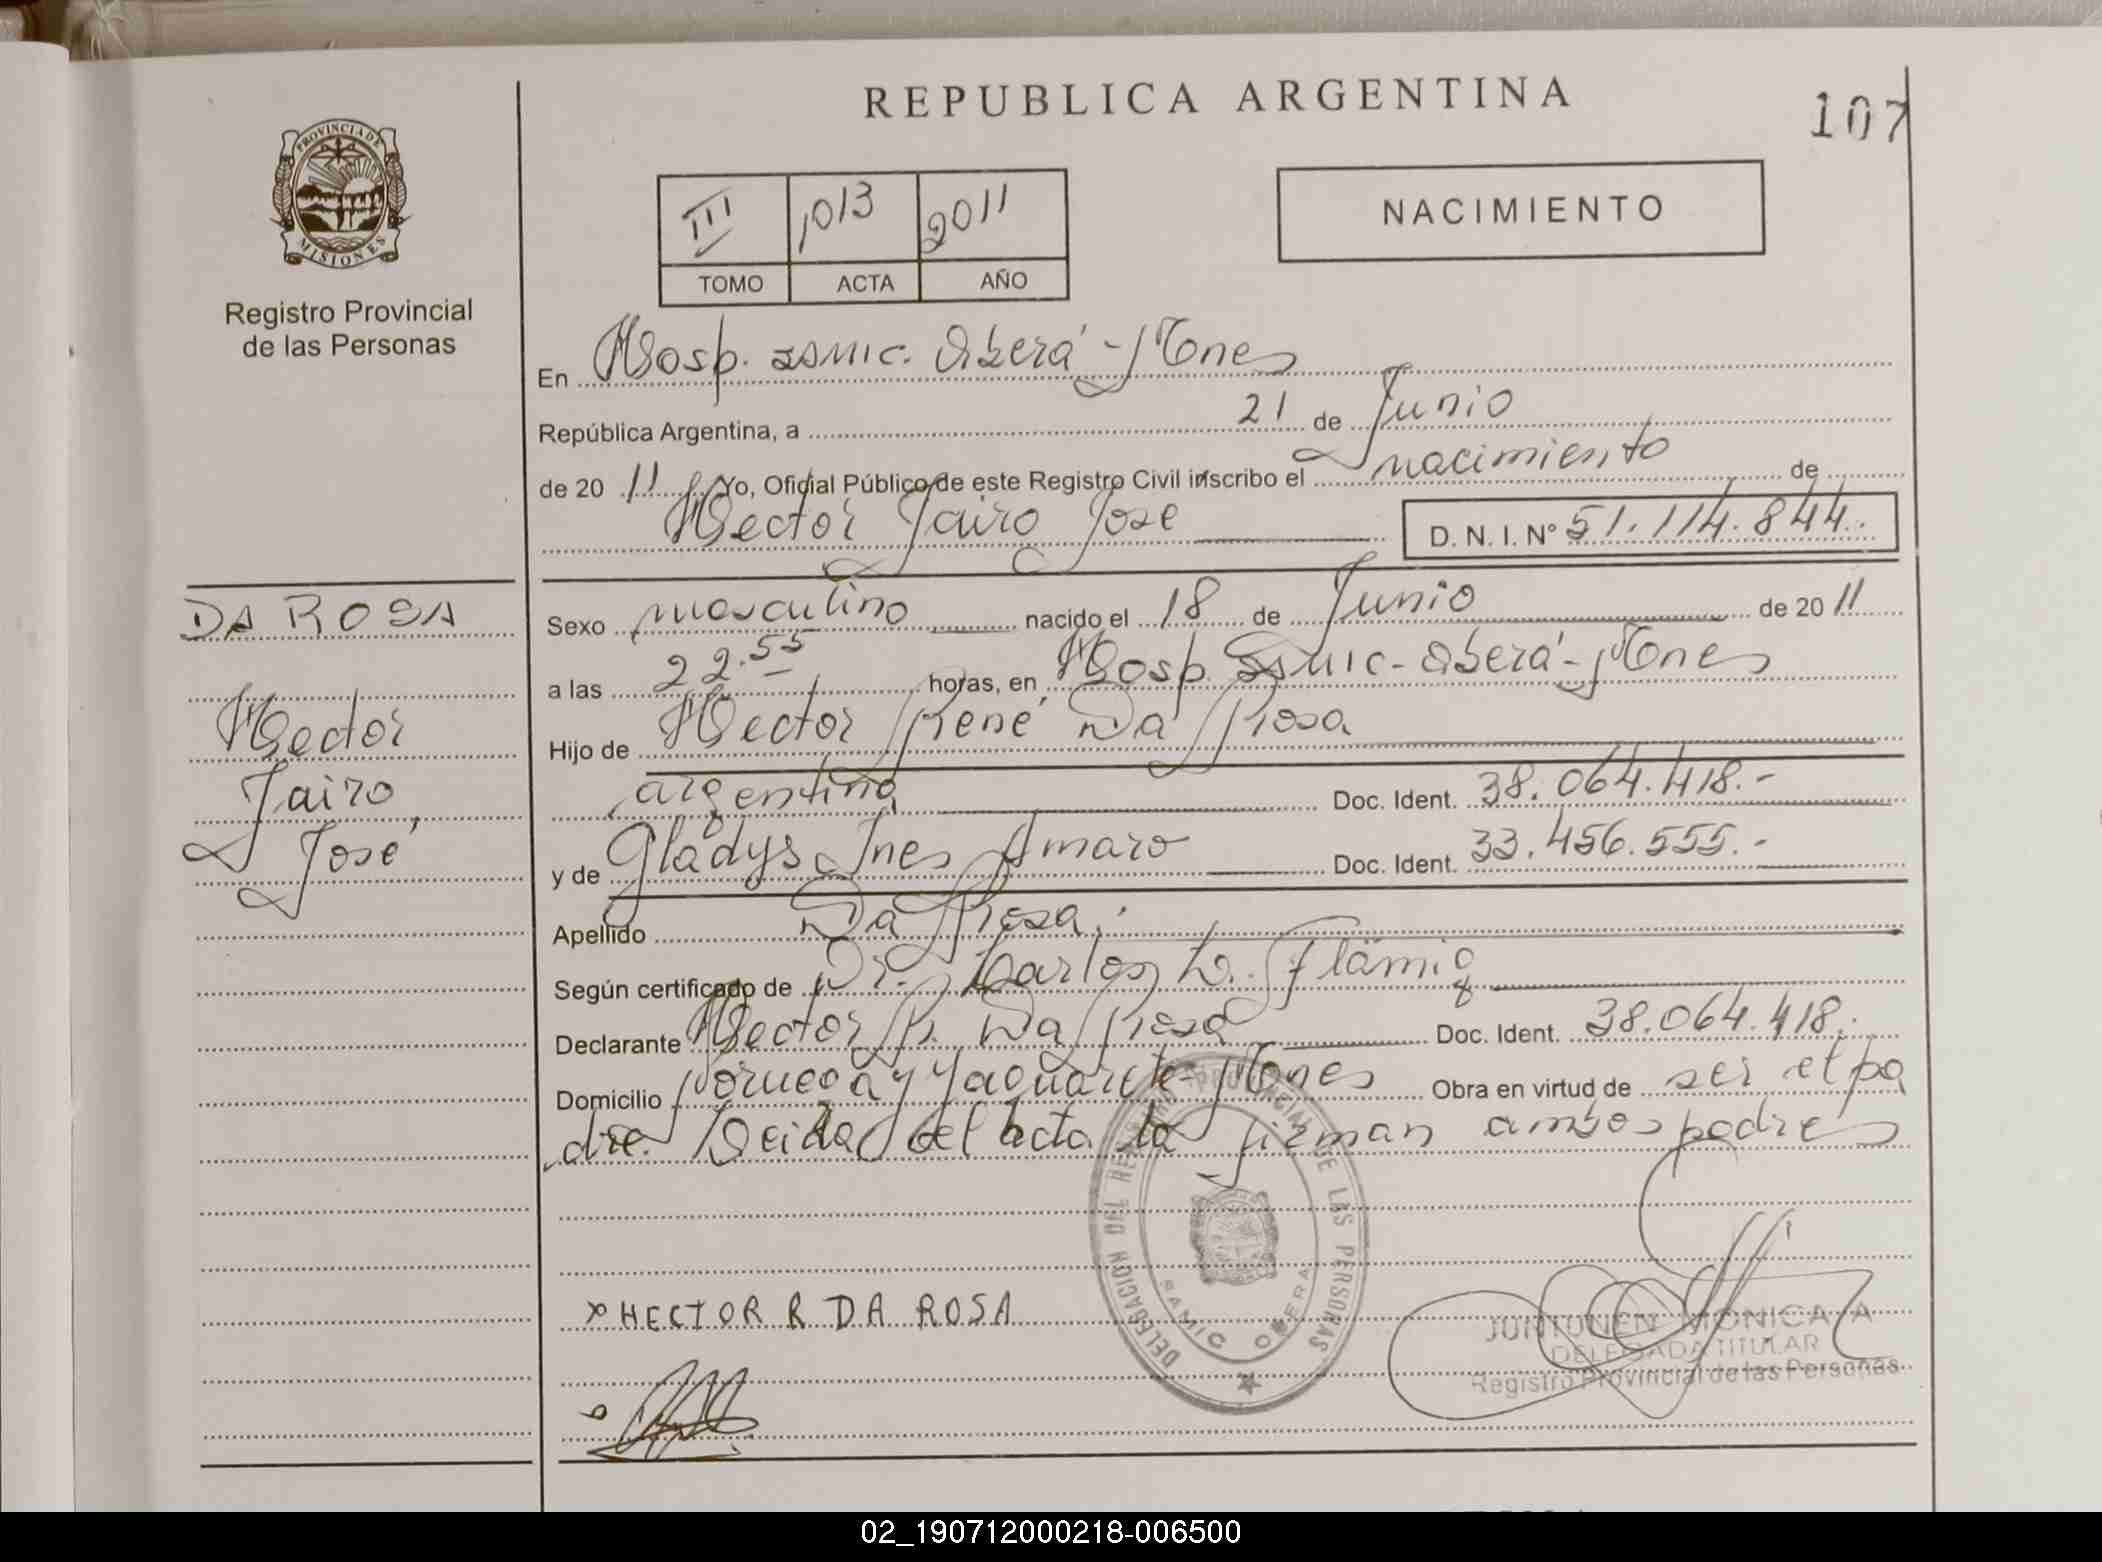 REPUBLICA ARGENTINA
107
PROVINCIA DE MISIONES
Registro Provincial
de las Personas
III 1013 2011
TOMO ACTA AÑO
NACIMIENTO
En Hosp. SAMIC. Oberá - Mnes
República Argentina, a 21 de Junio
de 20 11. Yo, Oficial Público de este Registro Civil inscribo el nacimiento de
Hector Jairo Jose D. N. I. Nº 51.114.844.
DA ROSA
Hector
Jairo
José
Sexo masculino nacido el 18 de Junio de 20 11
a las 22.55 horas, en Hosp. SAMIC - Oberá - Mnes
Hijo de Hector René Da Rosa
argentina Doc. Ident. 38.064.418.-
y de Gladys Ines Amaro Doc. Ident. 33.456.555.-
Apellido Da Rosa.
Según certificado de Dr. Carlos L. Flämig
Declarante Hector R. Da Rosa Doc. Ident. 38.064.418.
Domicilio Noruega y Yaguareté - Mnes Obra en virtud de ser el pa
dre. Leida el acta la firman ambos padres
DELEGACION DEL REGISTRO PROVINCIAL DE LAS PERSONAS
SAMIC OBERA
x HECTOR R DA ROSA
JUNTUNEN MONICA A
DELEGADA TITULAR
Registro Provincial de las Personas
02_190712000218-006500